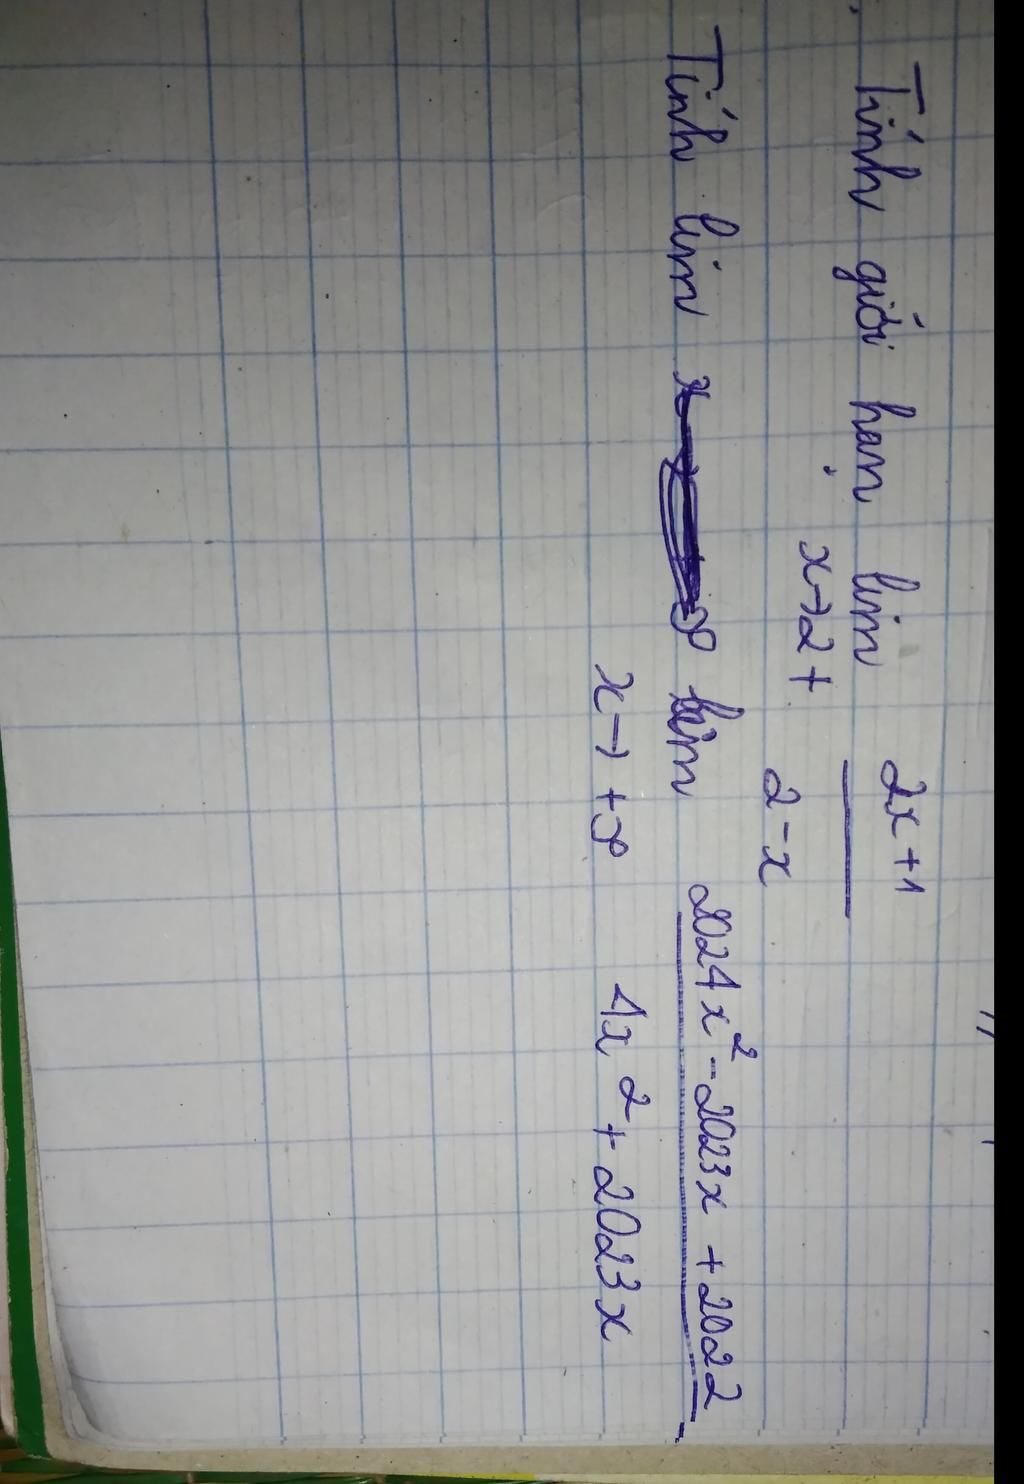 Tính giới hạn lim 2x+1
x→2+ 2-x
Tính lim lim 2024x² - 2023x + 2022
x→ +∞ 4x² + 2023x